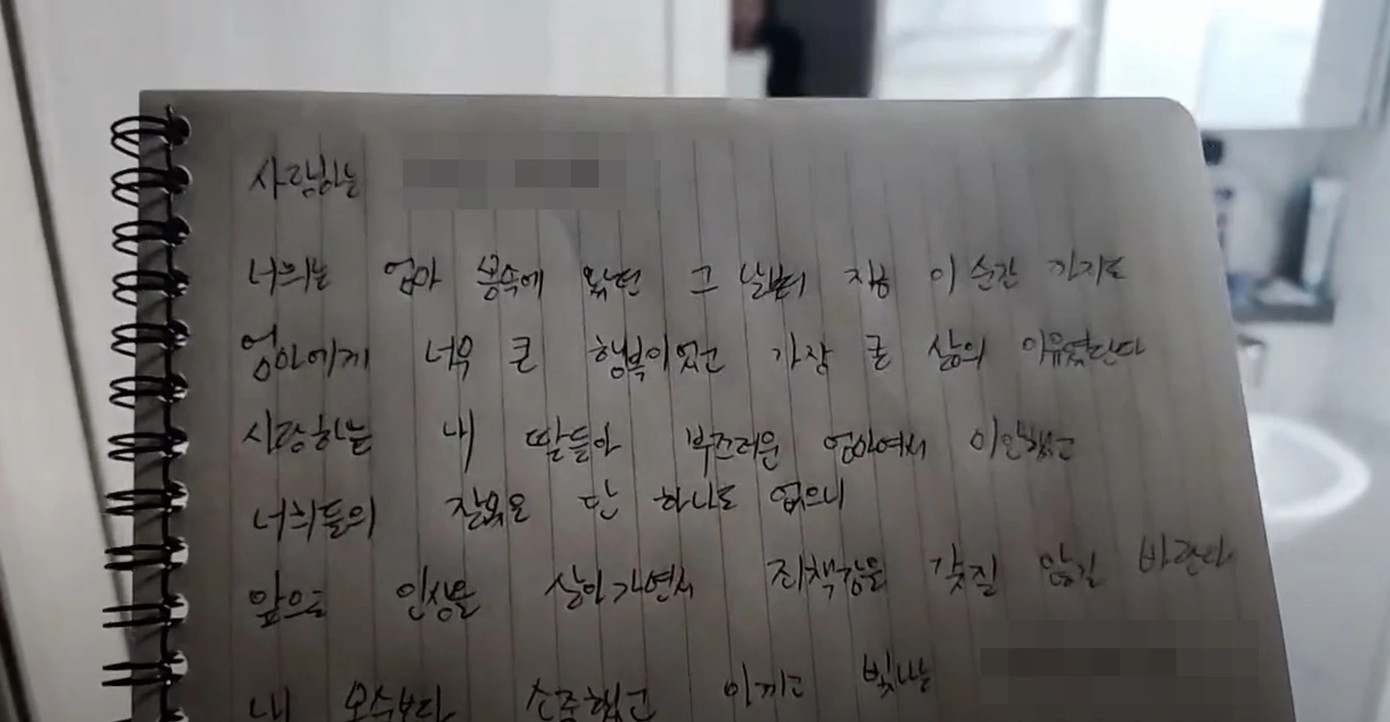 사랑하는
너희는 엄마 뱃속에 왔던 그 날부터 지금 이 순간 까지도
엄마에게 너무 큰 행복이었고 가장 큰 삶의 이유였단다
사랑하는 내 딸들아 부족한 엄마여서 미안했고
너희들의 잘못은 단 하나도 없으니
앞으로 인생을 살아가면서 죄책감을 갖질 않길 바란다
내 목숨보다 소중했고 아끼고 빛나는